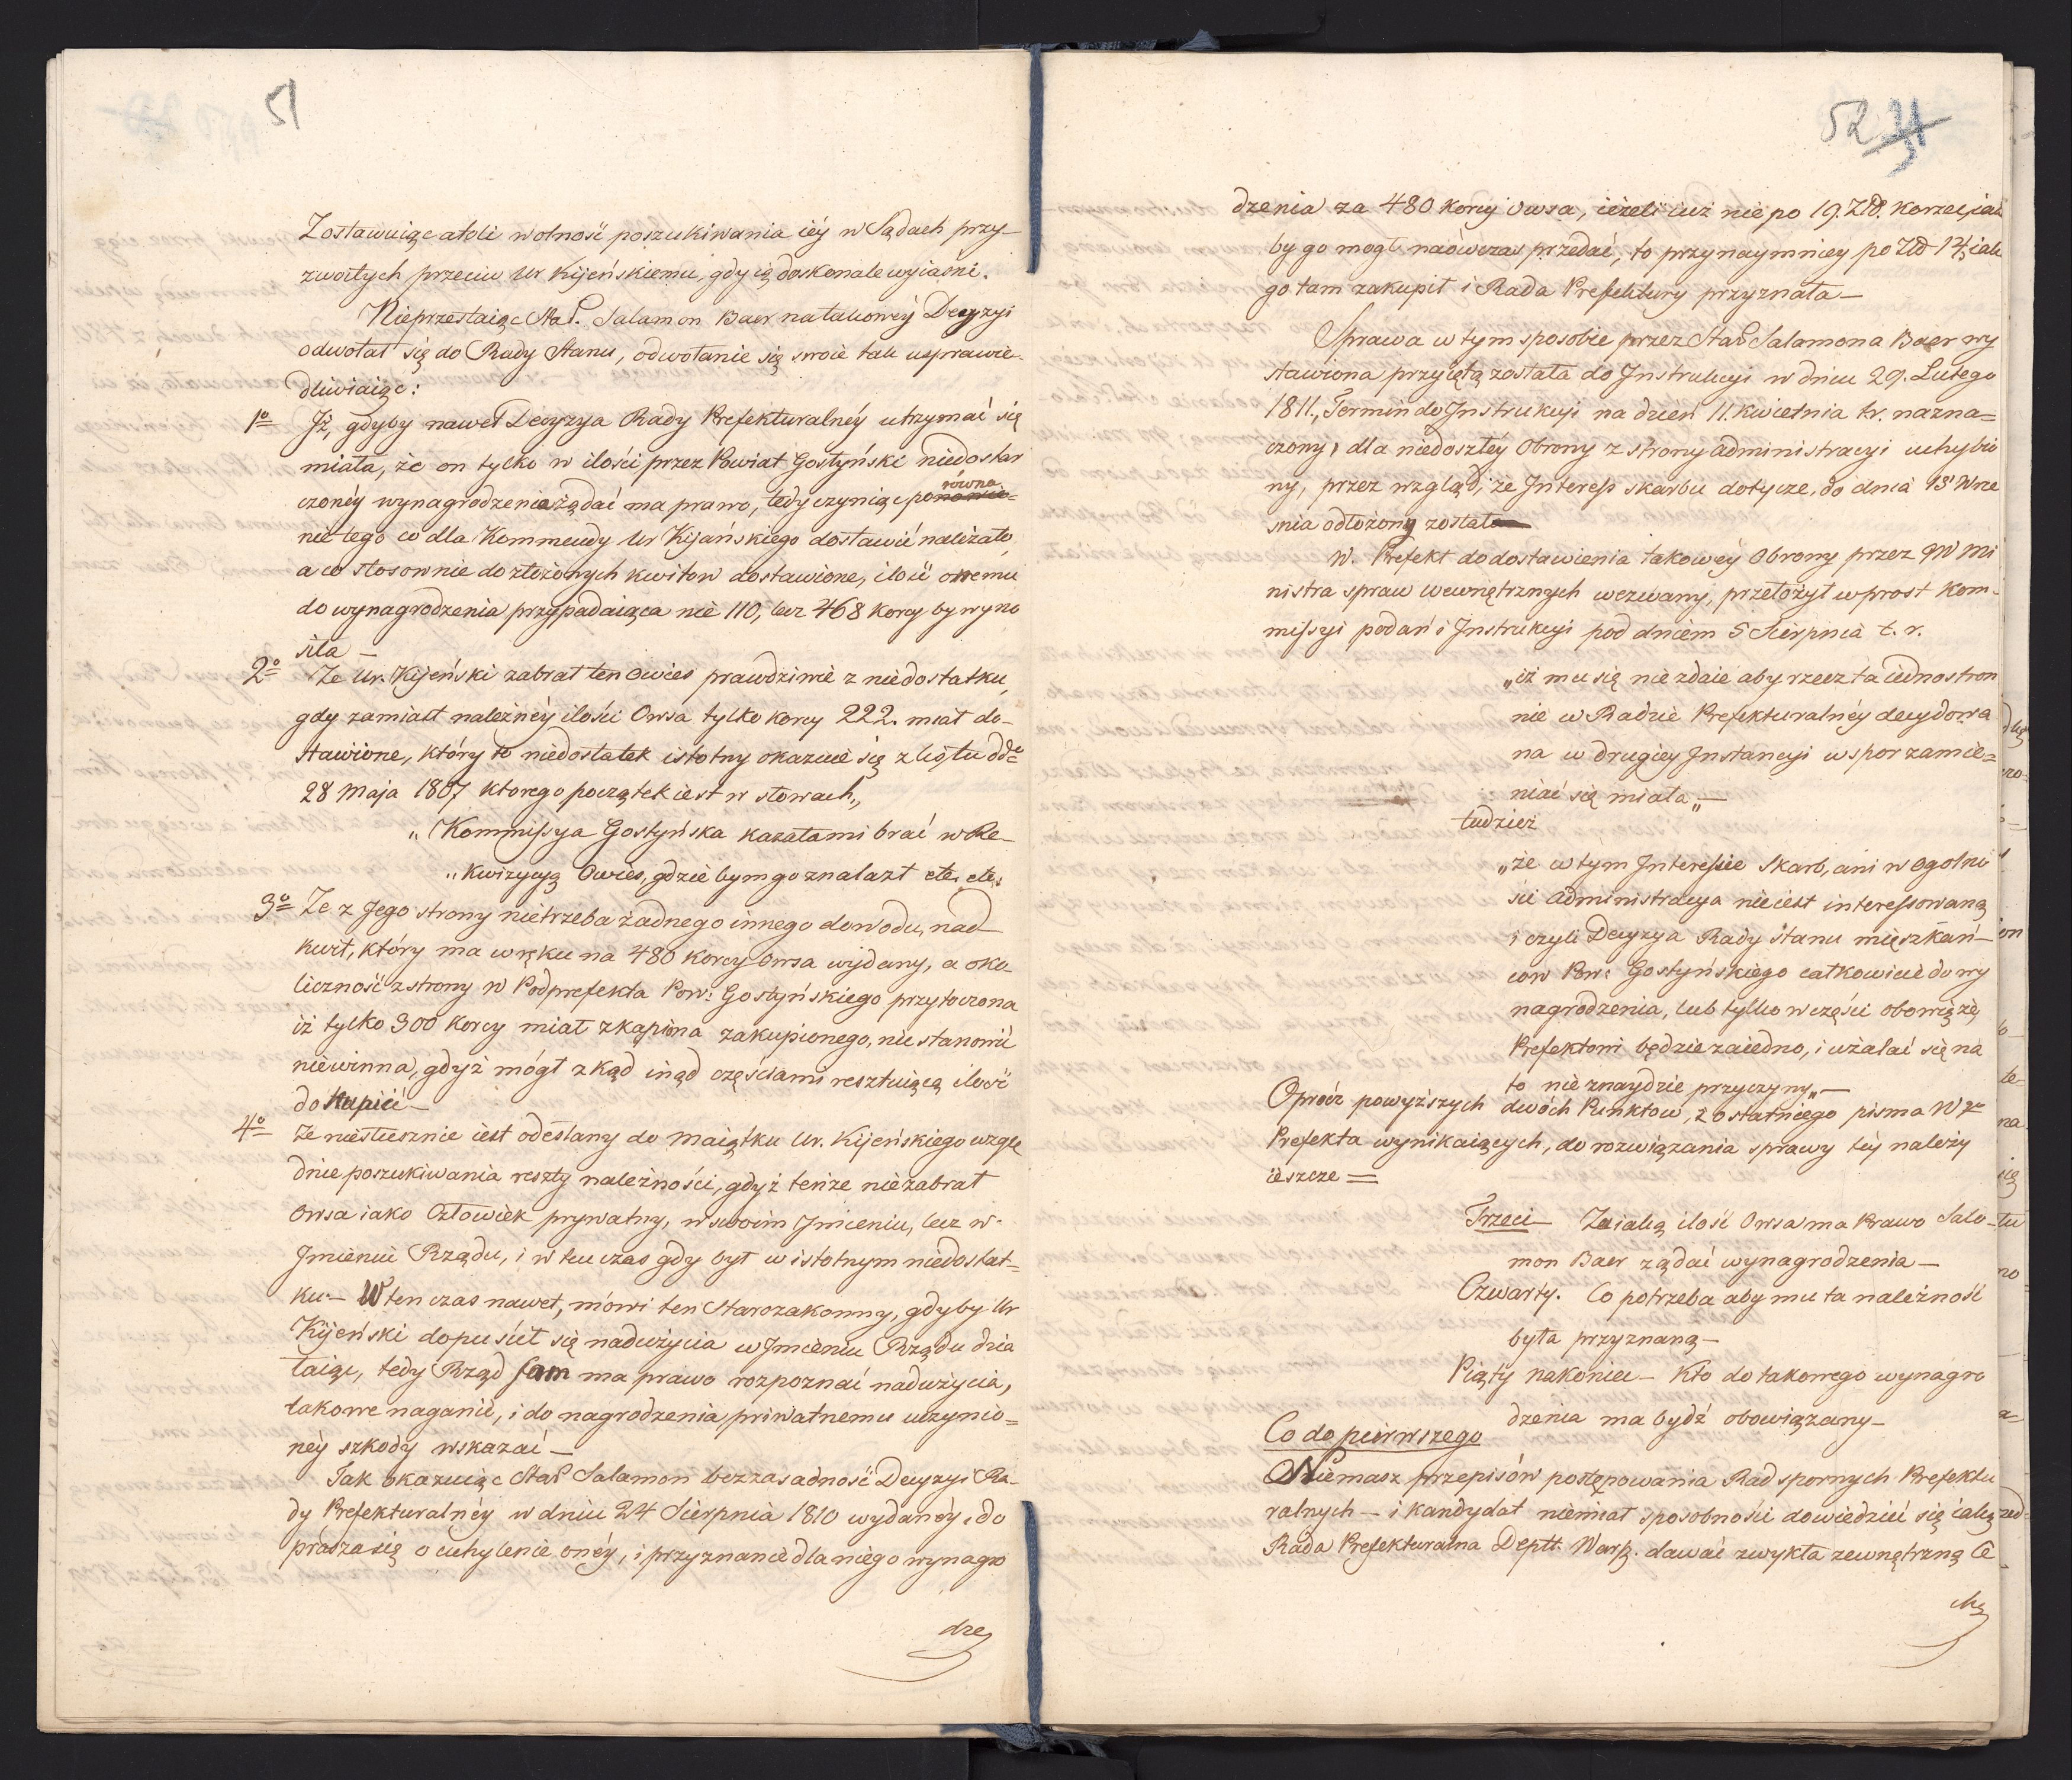 51
Zostawuiąc atoli wolność poszukiwania iéy w Sądach przy-
zwoitych przeciw Ur Kijeńskiemu, gdy ią doskonale wyiaśni.
Nieprzestaiąc Sta&#780;. Salamon Baer na takowéy Decyzyi
odwołał się do Rady Stanu, odwołanie się swoie tak usprawie-
dliwiaiąc:
1o Iż, gdyby nawet Decyzya Rady Prefekturalnéy utrzymać się
miała, że on tylko w ilości przez Powiat Gostyński niedostar
czonéy wynagrodzenia żądać ma prawo, tedy czyniąc porówna
nie tego co dla Kommendy Ur Kijańskiego dostawić należało,
a co stosownie do złożonych kwitow dostawione, ilość onemu
do wynagrodzenia przypadaiąca nie 110, lecz 468 korcy by wyno
siła —
2o Że Ur. Kijeński zabrał ten Owies prawdziwie z niedostatku,
gdy zamiast należnéy ilości Owsa tylko korcy 222. miał do-
stawione, który to niedostatek istotny okazuie się z listu dde
28 Maja 1807 ktorego początek iest w słowach,,
,, Kommissya Gostyńska kazała mi brać w Re-
,, kwizycyą Owies, gdzie bym go znalazł etc. etc.
3o Że z Jego strony nietrzeba żadnego innego dowodu, nad
kwit, który ma w ręku na 480 korcy Owsa wydany, a oko-
liczność z strony W Podprefekta Pow: Gostyńskiego przytoczona
iż tylko 300 korcy miał z kąpina zakupionego, nic stanowić
niewinna, gdyż mógł z kąd inąd częściami resztuiącą ilość
dokupić —
4o Że niesłusznie iest odesłany do maiątku Ur. Kijeńskiego wzglę
dnie poszukiwania reszty należności, gdyż tenże niezabrał
Owsa iako Człowiek prywatny, w swoim Jmieniu, lecz w
Jmieniu Rządu, i w ten czas gdy był w istotnym niedostat=
ku — W ten czas nawet, mówi ten Starozakonny, gdyby Ur
Kijeński dopuścił się nadużycia w Jmieniu Rządu dzia
łaiąc, tedy Rząd sam ma prawo rozpoznać nadużycia,
takowe naganić, i do nagrodzenia priwatnemu uczynio=
néy szkody wskazać —
Tak okazuiąc Sta&#780; Salamon bezzasadność Decyzyi Ra-
dy Prefekturalnéy w dniu 24 Sierpnia 1810 wydanéy, do
prasza się o uchylenie onéy, i przyznanie dla niego wynagro
dze
52
dzenia za 480 korcy Owsa, ieżeli iuż nie po 19. Zło. korzec, iak
by go mogł naówczas przedać, to przynaymniey po Zło 14, iak
go tam zakupił i Rada Prefektury przyznała —
Sprawa w tym sposobie przez Sta&#780; Salamona Baer wy
stawiona przyiętą została do Jnstrukcyi w dniu 29. Lutego
1811., Termin do Jnstrukcyi na dzień 11. Kwietnia t.r. nazna=
czony, dla niedoszłéy Obrony z strony Administracyi uchybio
ny, przez wzgląd, że Jnteress skarbu dotycze, do dnia 13 Wrze
śnia odłożony został
W. Prefekt do dostawienia takowéy Obrony przez JW Mi
nistra spraw wewnętrznych wezwany, przełożył wprost Kom-
missyi podań i Jnstrukcyi pod dniem 5 Sierpnia t. r.
„iż mu się nie zdaie aby rzecz ta iednostron
nie w Radzie Prefekturalnéy decydowa
na w drugiey Jnstancyi w spor zamie=
niać się miała„ —
tudzież
„że w tym Jnteressie Skarb, ani w ogolno
ści Administracya nieiest interessowaną
i czyli Decyzya Rady Stanu mieszkań-
cow Pow: Gostyńskiego całkowicie do wy
nagrodzenia, lub tylko w części obowiąże
Prefektowi będzie zaiedno, i użalać się na
to nie znaydzie przyczyny„ —
Oprócz powyższych dwóch Punktow, z ostatniego pisma Wgo
Prefekta wynikaiących, do rozwiązania sprawy téy należy
ieszcze =
Trzeci — Za iaką ilość Owsa ma Prawo Salo-
mon Baer żądać wynagrodzenia —
Czwarty. Co potrzeba aby mu ta należność
była przyznaną —
Piąty nakoniec — Kto do takowego wynagro
dzenia ma bydź obowiązany —
Co do pierwszego
Niemasz przepisów postępowania Rad spornych Prefektu
ralnych — i kandydat niemiał sposobności dowiedzieć się iaką
Rada Prefekturalna Deptt. Warsz. dawać zwykła zewnętrzną Ce
chę